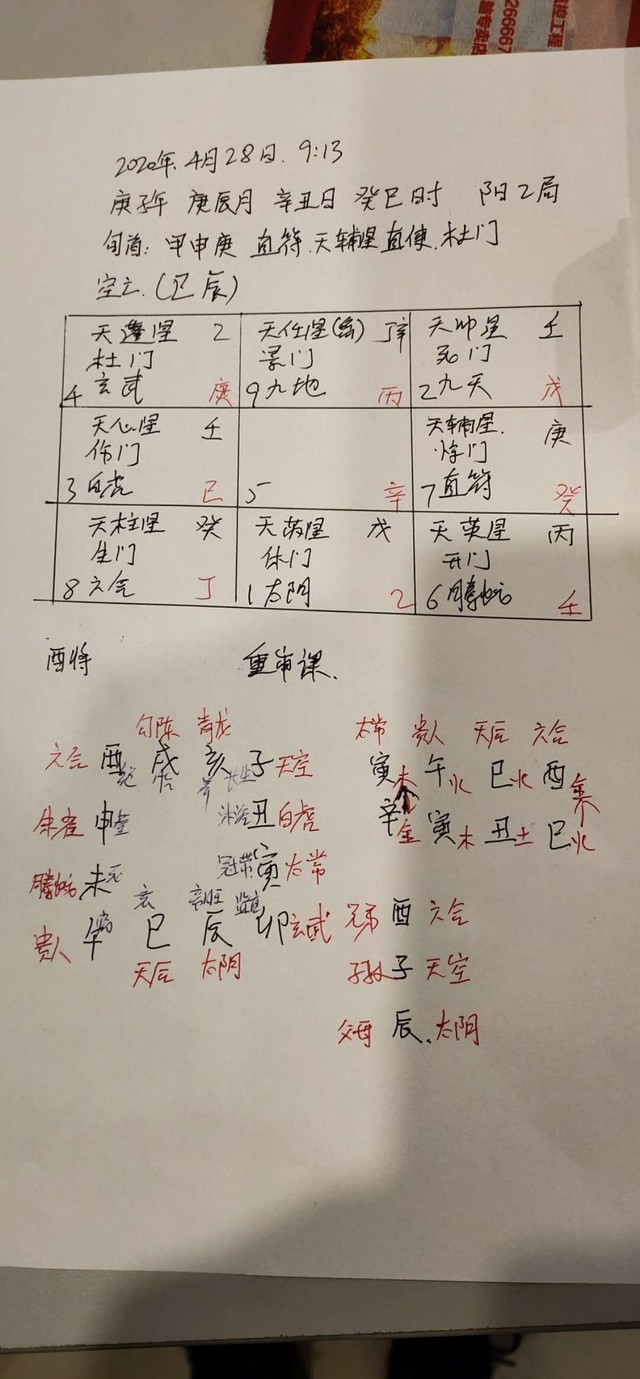 266667
专卖店
2020年.4月28日.9:13
庚子年 庚辰月 辛丑日 癸巳时 阳乙局
旬首: 甲申庚 直符.天辅星 直使.杜门
空亡.(卫辰)
天蓬星 乙 天任星(禽) 辛 天冲星 壬
杜门 景门 死门
4玄武 庚 9九地 丙 2九天 戊
天心星 壬 天辅星. 庚
伤门 惊门
3白虎 己 5 辛 7直符 癸
天柱星 癸 天芮星 戊 天英星 丙
生门 休门 开门
8六合 丁 1太阴 乙 6腾蛇 壬
酉将 重审课.
勾陈 青龙 太常 贵人 天后 六合
六合 酉 戌 亥 子 天空 寅木 午火 巳火 酉金
朱雀 申 沐浴 丑 白虎 辛金 寅木 丑土 巳火
腾蛇 未 冠带 寅 太常
贵人 午 巳 辰 卯 玄武 兄弟 酉 六合
天后 太阴 子孙 子 天空
父母 辰.太阴